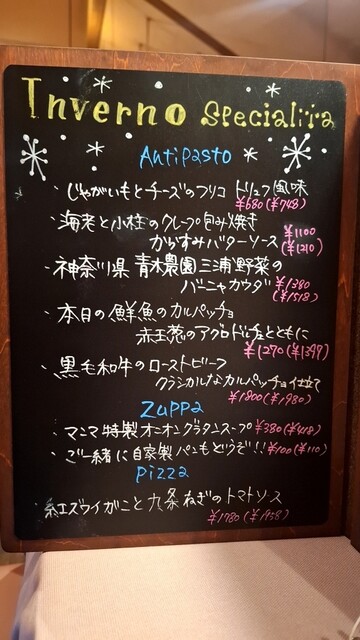 Inverno Specialita
Antipasto
・じゃがいもとチーズのフリコ トリュフ風味
¥680(¥748)
・海老と小柱のクレープ包み焼き
からすみバターソース
¥1100
(¥1210)
・神奈川県 青木農園 三浦野菜の
バーニャカウダ
¥1380
(¥1518)
・本日の鮮魚のカルパッチョ
赤玉葱のアグロドルチェとともに
¥1270(¥1397)
・黒毛和牛のローストビーフ
クラシカルなカルパッチョ仕立て
¥1800(¥1980)
Zuppa
・マニマ特製オニオングラタンスープ ¥380(¥418)
・ご一緒に自家製パンもどうぞ!! ¥100(¥110)
Pizza
紅ズワイがにと九条ねぎのトマトソース
¥1780(¥1958)